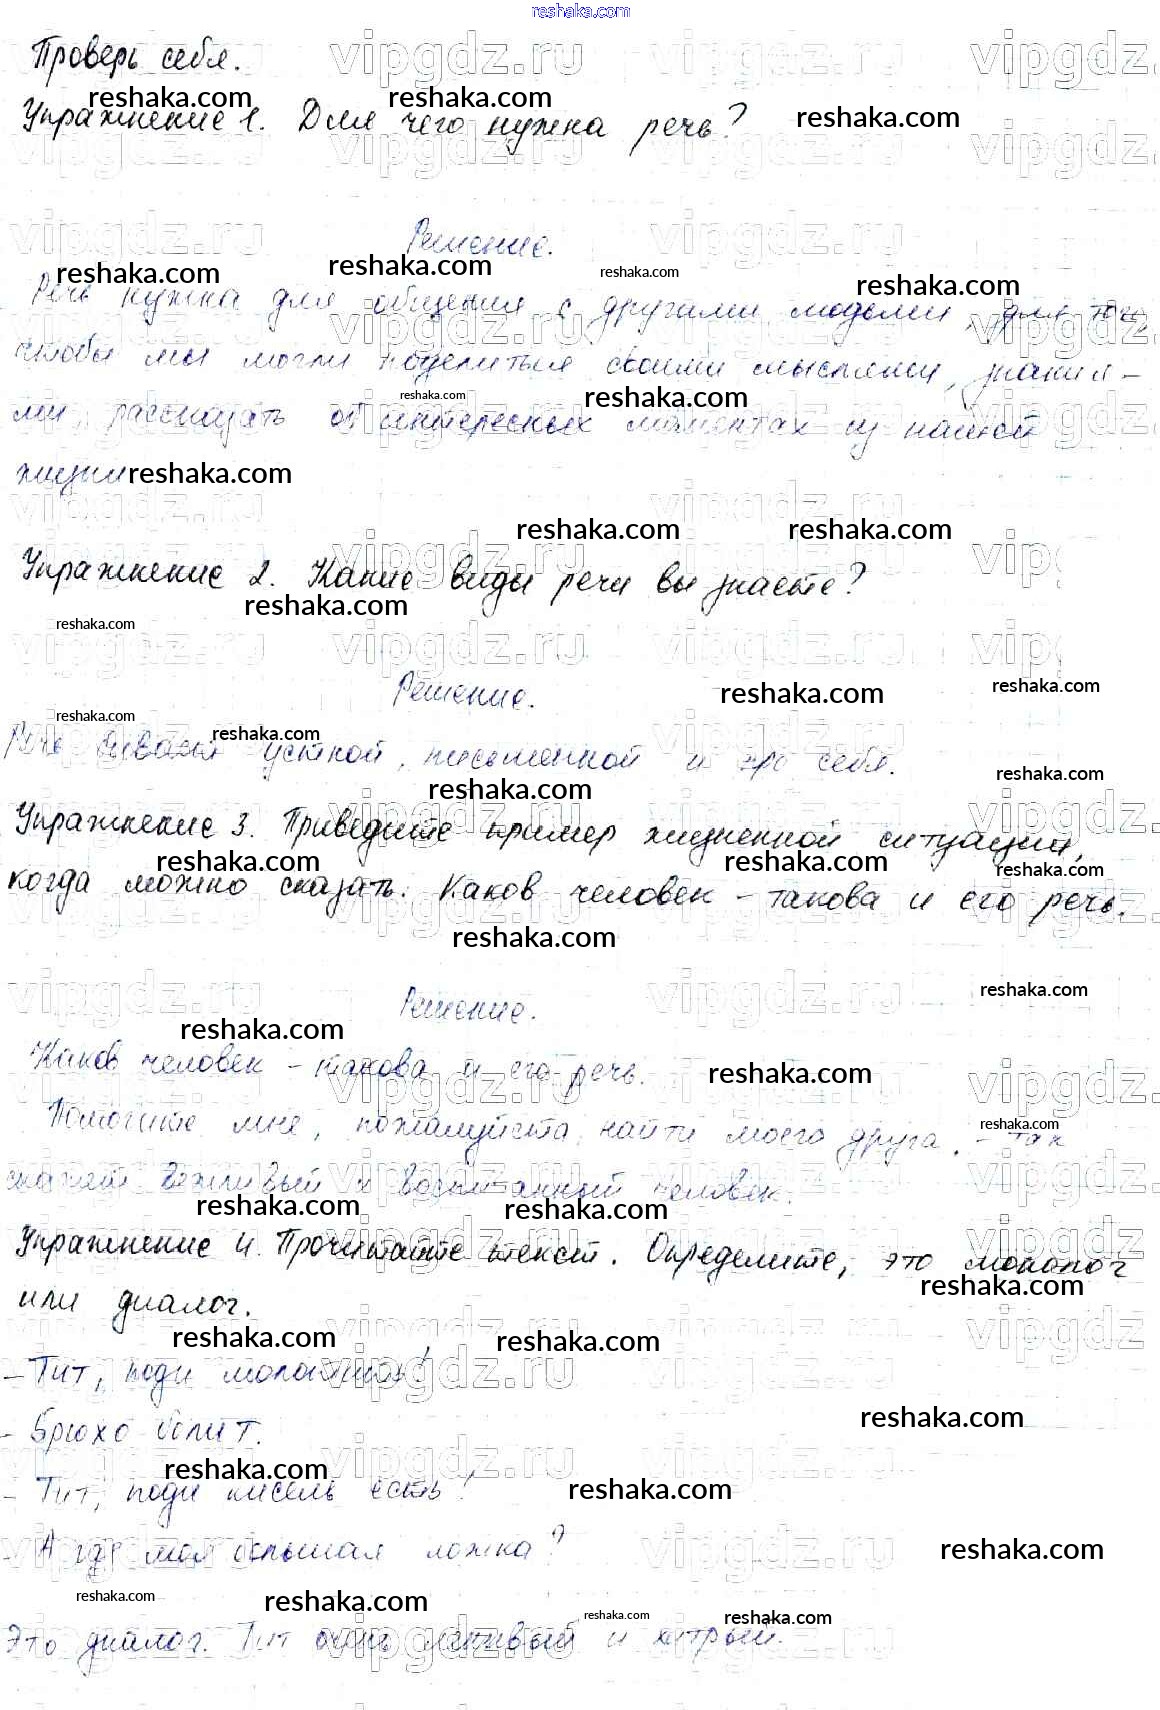 reshaka.com
Проверь себя.
Упражнение 1. Для чего нужна речь?
Решение.
Речь нужна для общения с другими людьми, для того,
чтобы мы могли поделиться своими мыслями, знания-
ми, рассказать об интересных моментах из нашей
жизни
Упражнение 2. Какие виды речи вы знаете?
Решение.
Речь бывает устной, письменной и про себя.
Упражнение 3. Приведите пример жизненной ситуации,
когда можно сказать: Каков человек - такова и его речь.
Решение.
Каков человек - такова и его речь.
Помогите мне, пожалуйста, найти моего друга, - так
скажет вежливый и воспитанный человек.
Упражнение 4. Прочитайте текст. Определите, это монолог
или диалог.
- Тит, поди молотить!
- Брюхо болит.
- Тит, поди кисель есть!
- А где моя большая ложка?
Это диалог. Тит очень ленивый и хитрый.